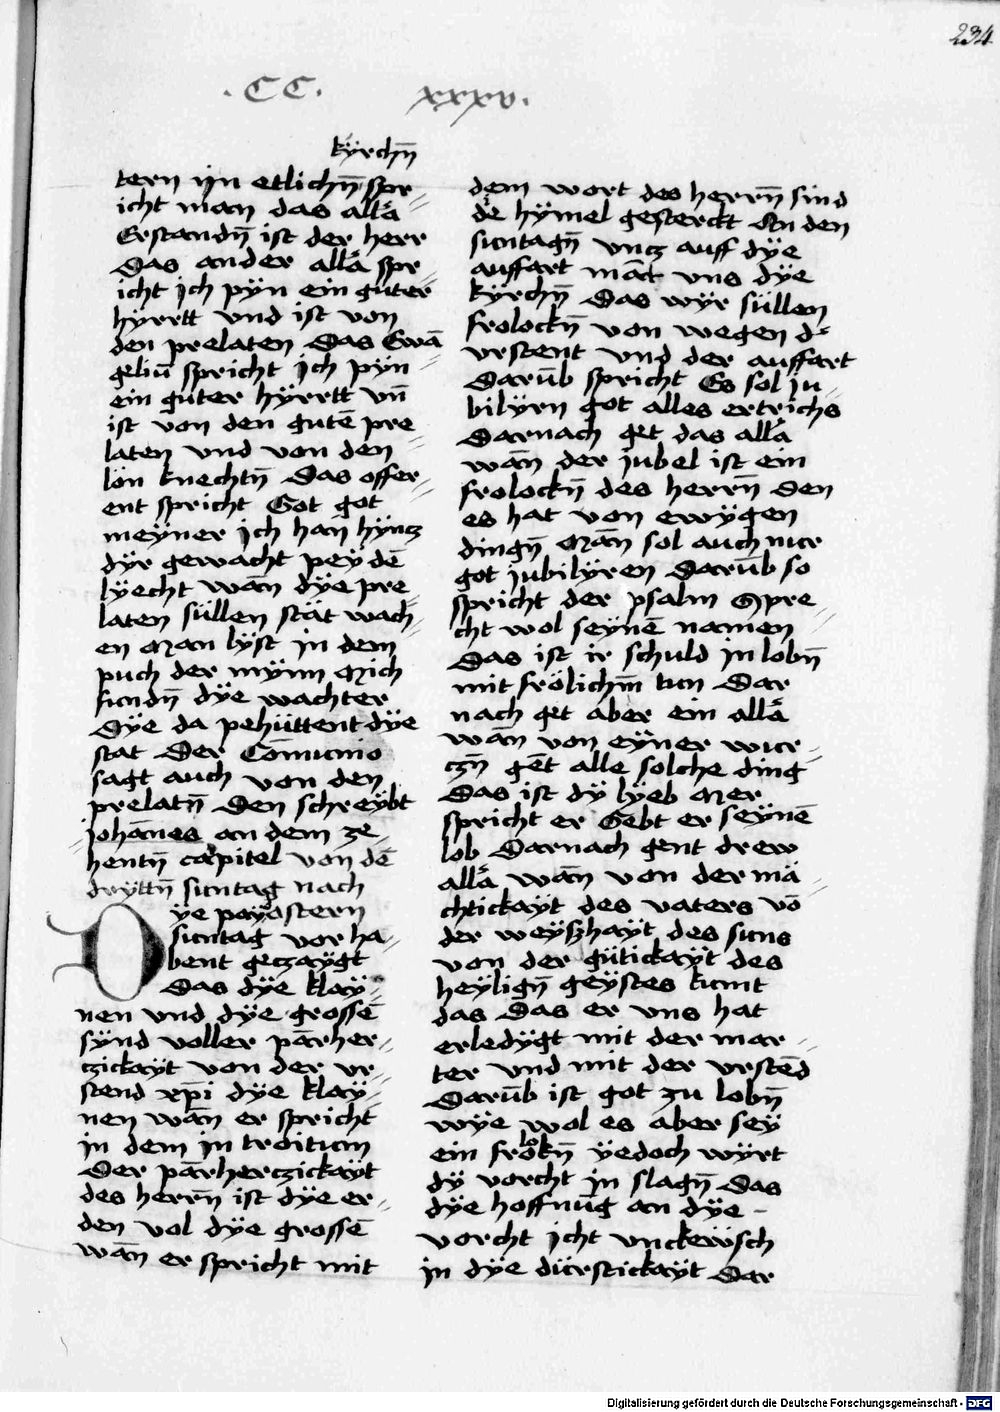 234
.CC. xxxv.
kyrchn̄
tern ym etlichn̄ spr=
icht man das all̄a
Erstandn̄ ist der herr
Das ander all̄a spr=
icht ich pÿn ein guter
hÿrtt vnd ist von
den prelaten Das Ewā
geliū spricht ich pÿn
ein guter hÿrtt vn̄
ist von den gutē pre=
laten vnd von den
lön knechtn̄ Das offer=
ent spricht Got got
meÿner ich han hÿncz
dÿr gewacht peÿ dē
lÿecht wān dÿe pre=
laten süllen stät wach=
en Man lÿst in dem
puch der mÿnn Mich
fundn̄ dÿe wachter
Dÿe da pehüttent dÿe
stat Der Cōmunio
sagt auch von den
prelatn̄ Den schreÿbt
johānes an dem ze=
hentn̄ capitel von dē
drÿttn̄ suntag nach
Dÿe paÿ ostern
suntag vor ha=
bent geczaÿgt
Das dÿe klaÿ=
nen vnd dÿe grossē
sÿnd voller pārher=
czickaÿt von der vr=
stend xp̄i dÿe klaÿ=
nen wān er spricht
in dem introitum
Der pārherczickaÿt
des herrn̄ ist dÿe er=
den vol dÿe grossē
wān er spricht mit
dem wort des herrn̄ sind
die hÿmel gesterckt An den
suntagn̄ vncz auff dÿe
auffart mact vns dÿe
kÿrchn̄ Das wÿr süllen
frolockn̄ von wegen d'
vrstent vnd der auffart
Darūb spricht Es sol ju=
bilÿrn got alles ertrichs
Darnach get das all̄a
wān der jubel ist ein
frolockn̄ des herrn̄ Den
es hat von ewÿgen
dingn̄ Mān sol auch nur
got jubilÿren Darūb so
spricht der psalm Spre=
cht wol seÿnē namen
Das ist ir schuld in lobn̄
mit frölichm̄ tun Dar
nach get aber ein all̄a
wān von eÿner wur=
czn̄ gēt alle solche ding
Das ist dÿ lÿeb Mer
spricht er Gebt er seÿnē
lob Darnach gent drew
all̄a wān von der mä=
chtickaÿt des vaters vō
der weÿszhaÿt des suns
von der gütickaÿt des
heÿlign̄ geÿstes kumt
das Das er vns hat
erledÿgt mit der mar=
ter vnd mit der vrstēd
Darūb ist got zu lobn̄
wÿe wol es aber seÿ
ein frolokn̄ ÿedoch wÿrt
dÿ vorcht in slagn̄ Das
dÿe hoffnūg an dÿe -
vorcht icht vnckeÿsch
in dÿe dürstickaÿt Dar
Digitalisierung gefördert durch die Deutsche Forschungsgemeinschaft - DFG